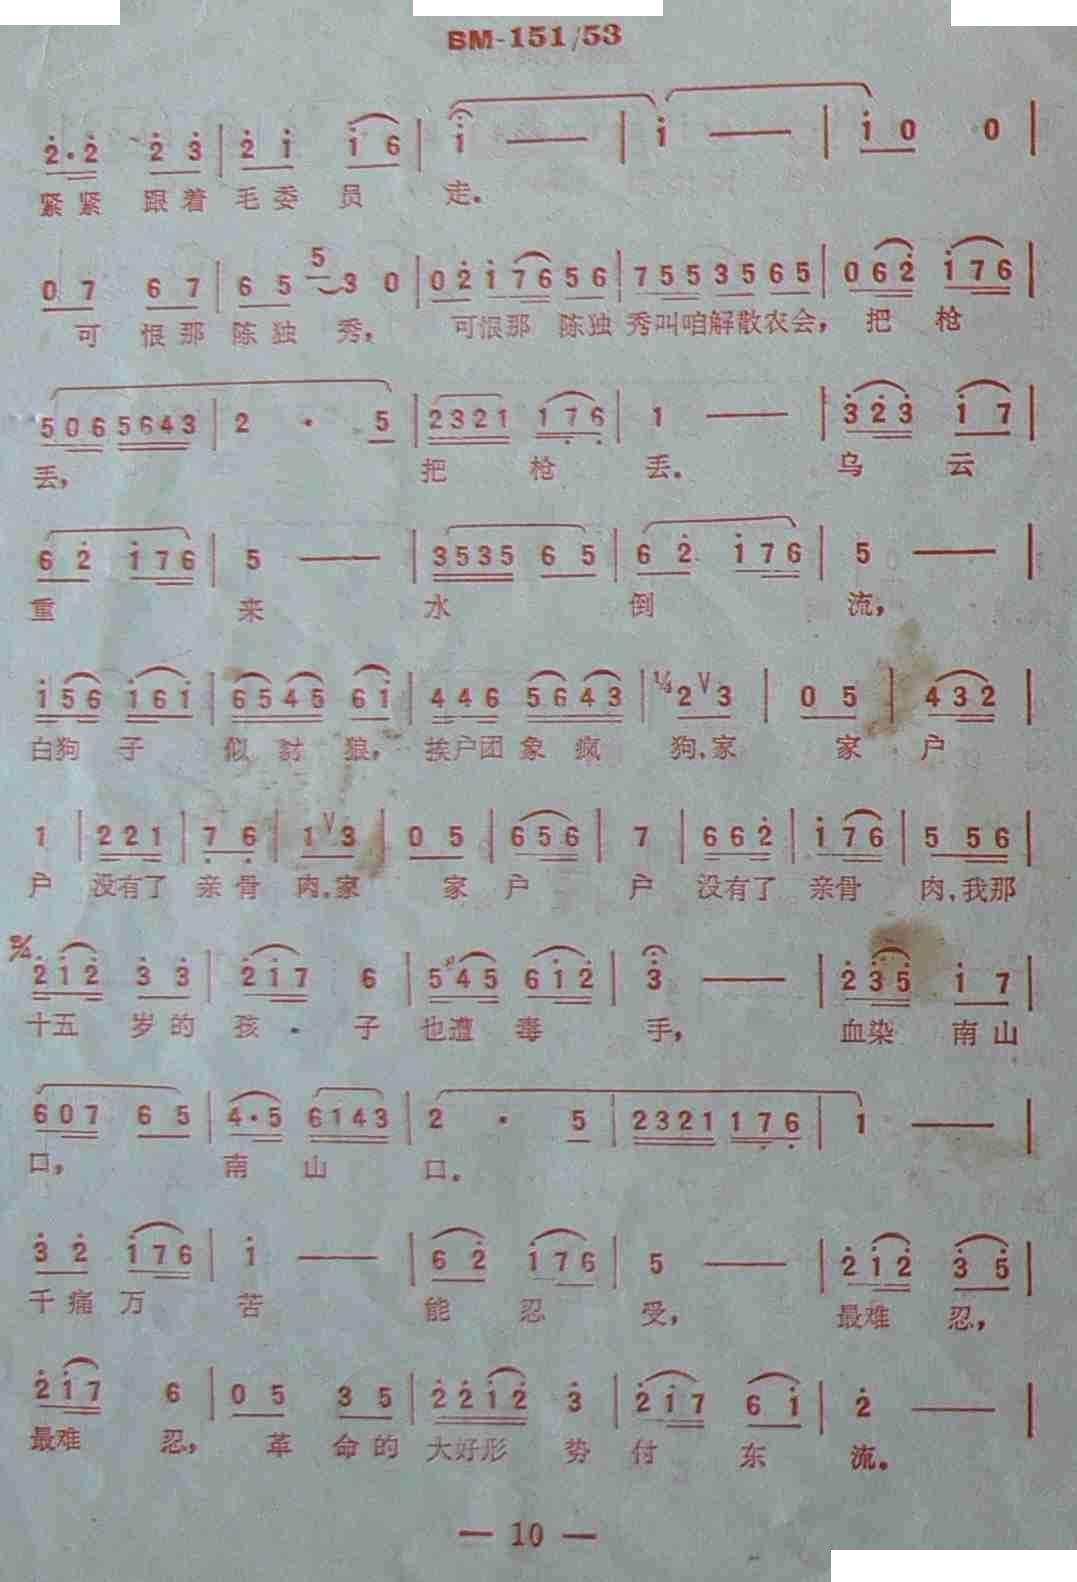 BM-151/53
2̇·2̇ 2̇ 3̇ | 2̇ 1̇ 1̇ 6 | 1̇ — | 1̇ — | 1̇ 0 0 |
紧紧 跟着 毛委 员 走。
0 7 6 7 | 6 5 5 3 0 | 0 2̇ 1̇ 7 6 5 6 | 7 5 5 3 5 6 5 | 0 6 2̇ 1̇ 7 6 |
可 恨那 陈独 秀， 可恨那 陈独 秀叫咱解散农会， 把 枪
5 0 6 5 6 4 3 | 2 · 5 | 2 3 2 1 1 7̣ 6̣ | 1 — | 3̇ 2̇ 3̇ 1̇ 7 |
丢， 把 枪 丢。 乌 云
6 2̇ 1̇ 7 6 | 5 — | 3 5 3 5 6 5 | 6 2̇ 1̇ 7 6 | 5 — |
重 来 水 倒 流，
1̇ 5 6 1̇ 6 1̇ | 6 5 4 5 6 1̇ | 4 4 6 5 6 4 3 | ¼ 2 V 3 | 0 5 | 4 3 2 |
白狗 子 似 豺 狼， 挨户团 象 疯 狗，家 家 户
1 | 2 2 1 | 7̣ 6̣ | 1 V 3 | 0 5 | 6 5 6 | 7 | 6 6 2̇ | 1̇ 7 6 | 5 5 6 |
户 没有了 亲骨 肉，家 家 户 户 没有了 亲骨 肉，我那
2/4 2̇ 1̇ 2̇ 3̇ 3̇ | 2̇ 1̇ 7 6 | 5 #4 5 6 1̇ 2̇ | 3̇ — | 2̇ 3̇ 5̇ 1̇ 7 |
十五 岁的 孩 子 也遭 毒 手， 血染 南山
6 0 7 6 5 | 4·5 6 1 4 3 | 2 · 5 | 2 3 2 1 1 7̣ 6̣ | 1 — |
口， 南 山 口。
3̇ 2̇ 1̇ 7 6 | 1̇ — | 6 2̇ 1̇ 7 6 | 5 — | 2̇ 1̇ 2̇ 3̇ 5̇ |
千痛万 苦 能 忍 受， 最难 忍，
2̇ 1̇ 7 6 | 0 5 3 5 | 2̇ 2̇ 1̇ 2̇ 3̇ | 2̇ 1̇ 7 6 1̇ | 2̇ — |
最难 忍， 革 命的 大好形 势 付 东 流。
— 10 —